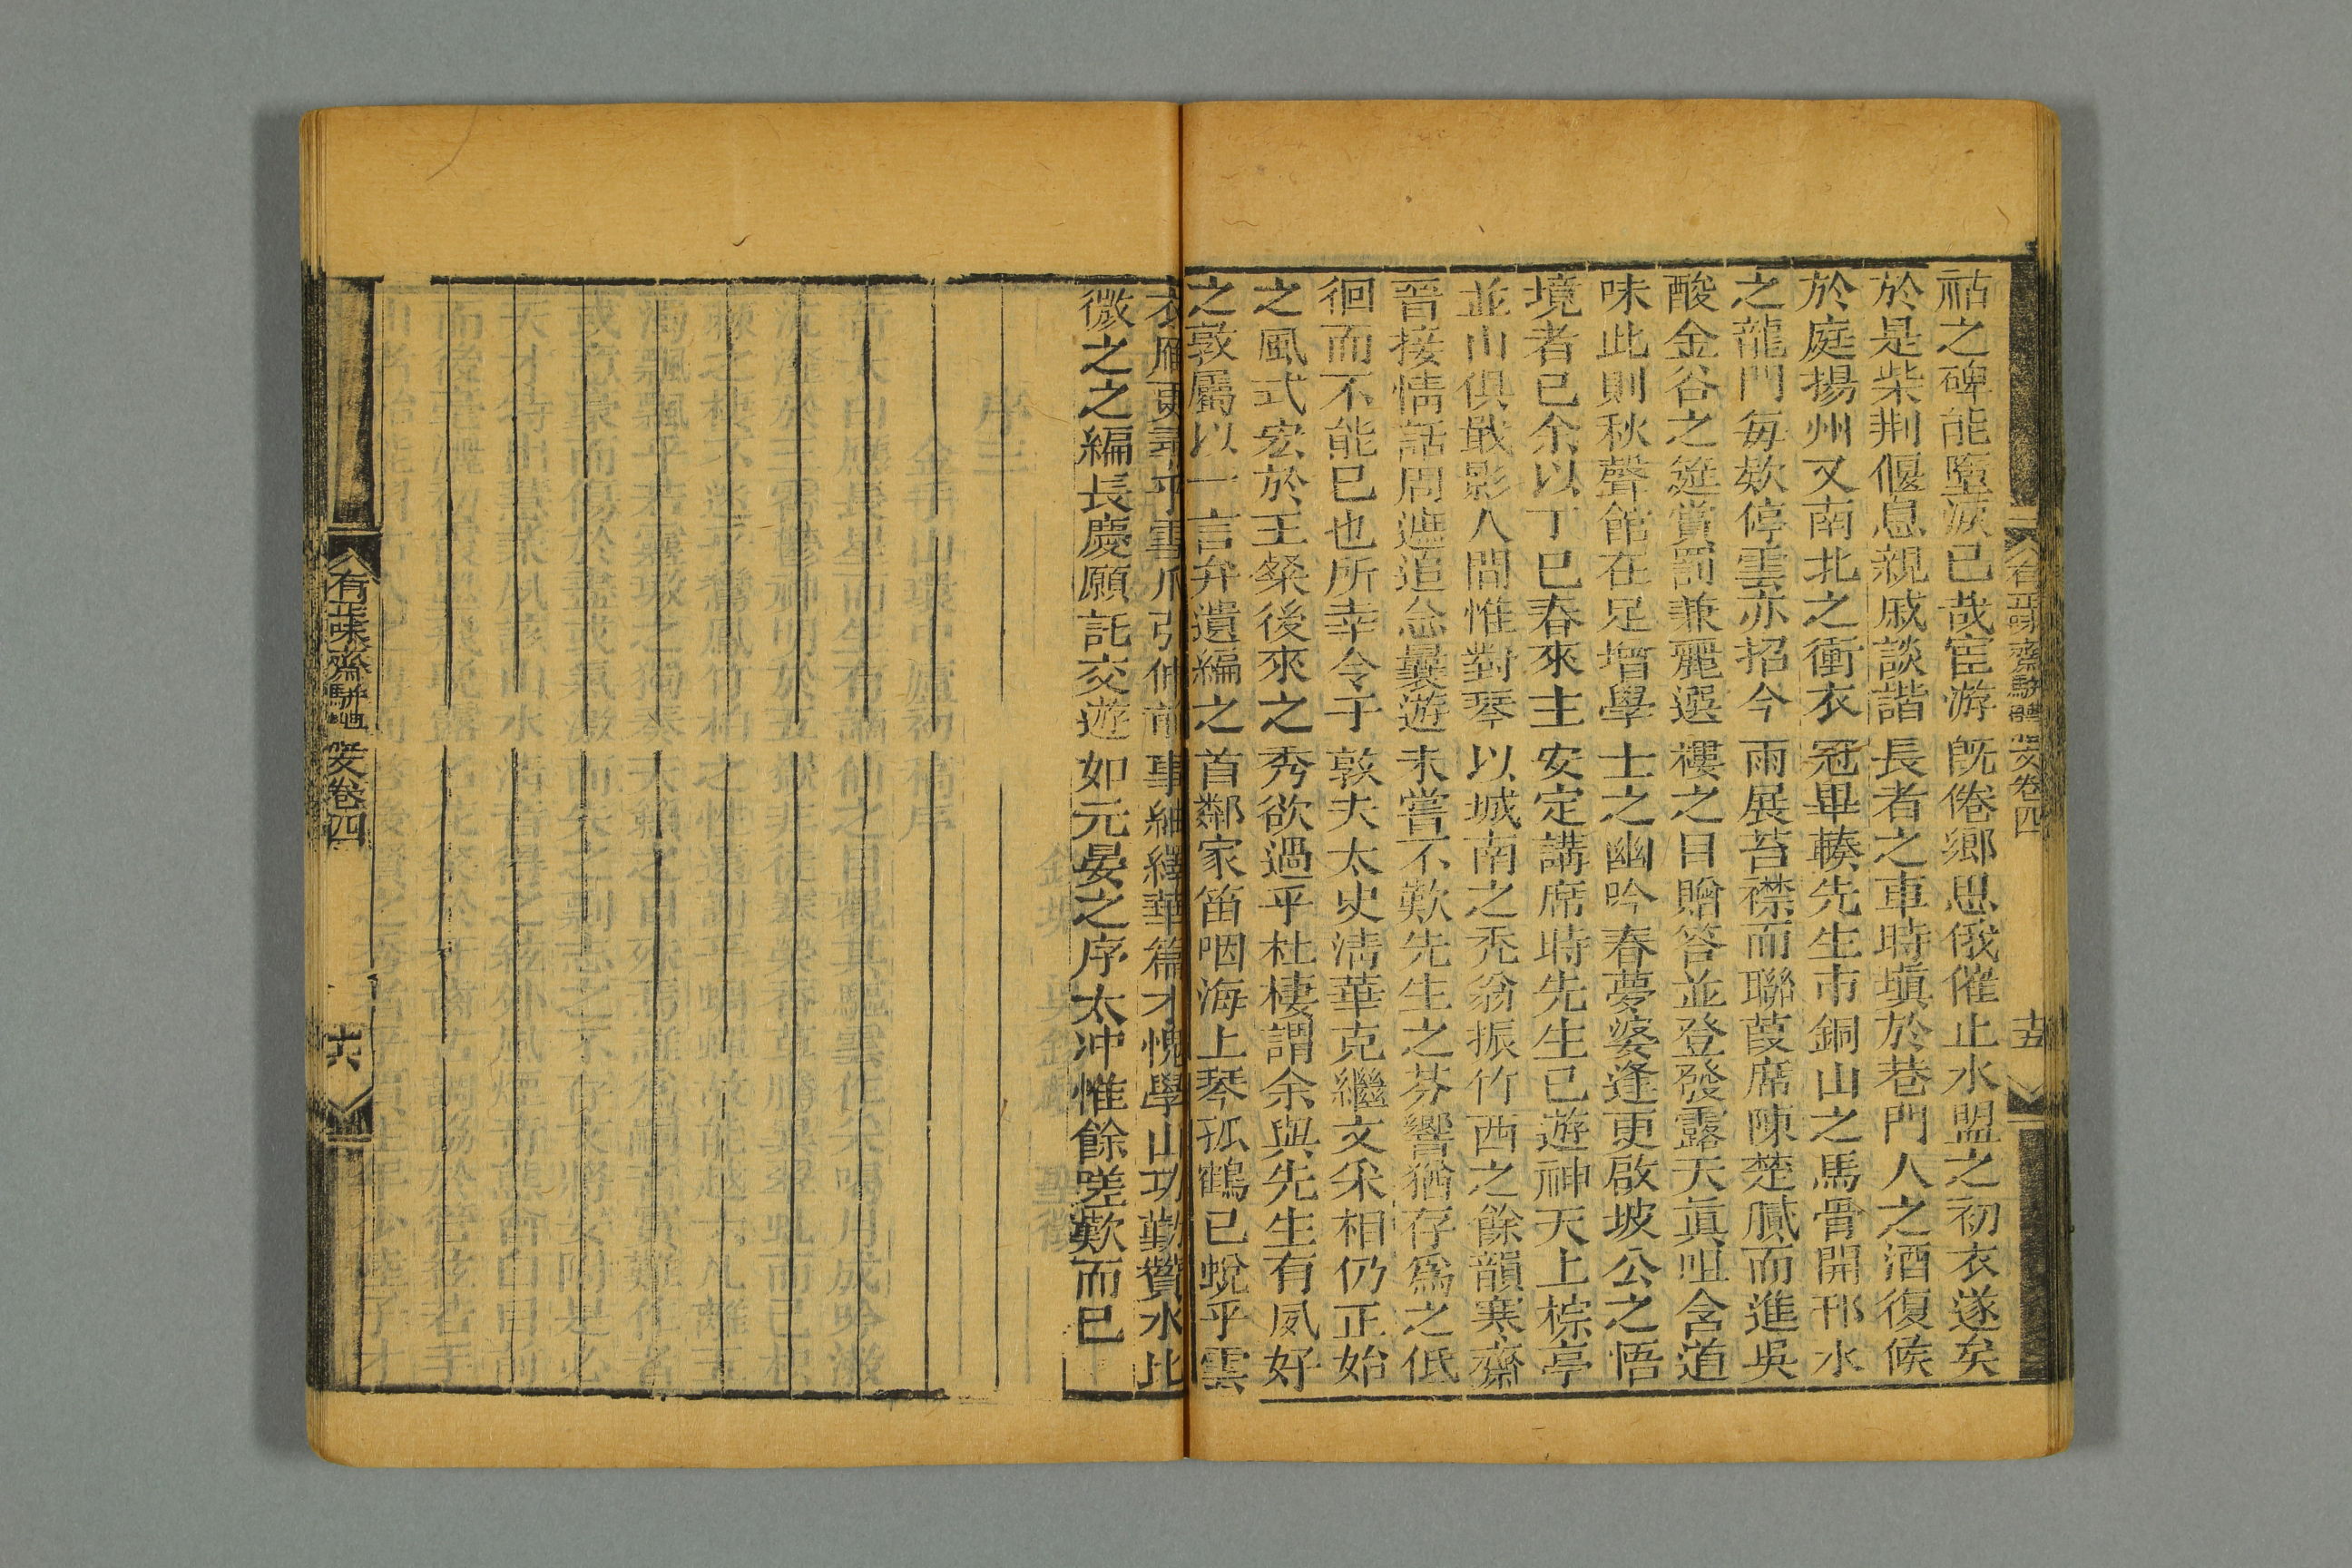 祜之碑能墮淚已哉宦游旣倦鄉思俄催止水盟之初衣遂矣
於是柴荆偃息親戚談諧長者之車時塡於巷門人之酒復候
於庭揚州又南北之衝衣冠畢輳先生市銅山之馬骨開邗水
之龍門每欵停雲亦招今雨展苔襟而聯葭席陳楚膩而進吳
酸金谷之筵賞罰兼麗選樓之日贈答並登發露天眞咀含道
味此則秋聲館在足增學士之幽吟春夢婆逢更啟坡公之悟
境者已余以丁巳春來主安定講席時先生已遊神天上棕亭
並山俱戢影人間惟對琴以城南之禿翁振竹西之餘韻寒齋
晉接情話周遮追念曩遊未嘗不歎先生之芬響猶存爲之低
徊而不能已也所幸令子敦夫太史淸華克繼文采相仍正始
之風式宏於王粲後來之秀欲過乎杜棲謂余與先生有夙好
之敦屬以一言弁遺編之首鄰家笛咽海上琴孤鶴已蛻乎雲
衣雁更尋乎雪爪引伸前事紬繹華篇才愧學山功勤贊水比
微之之編長慶願託交遊如元晏之序太冲惟餘嗟歎而已
有正味齋駢體文卷四
十五
有正味齋駢體文卷四
十六